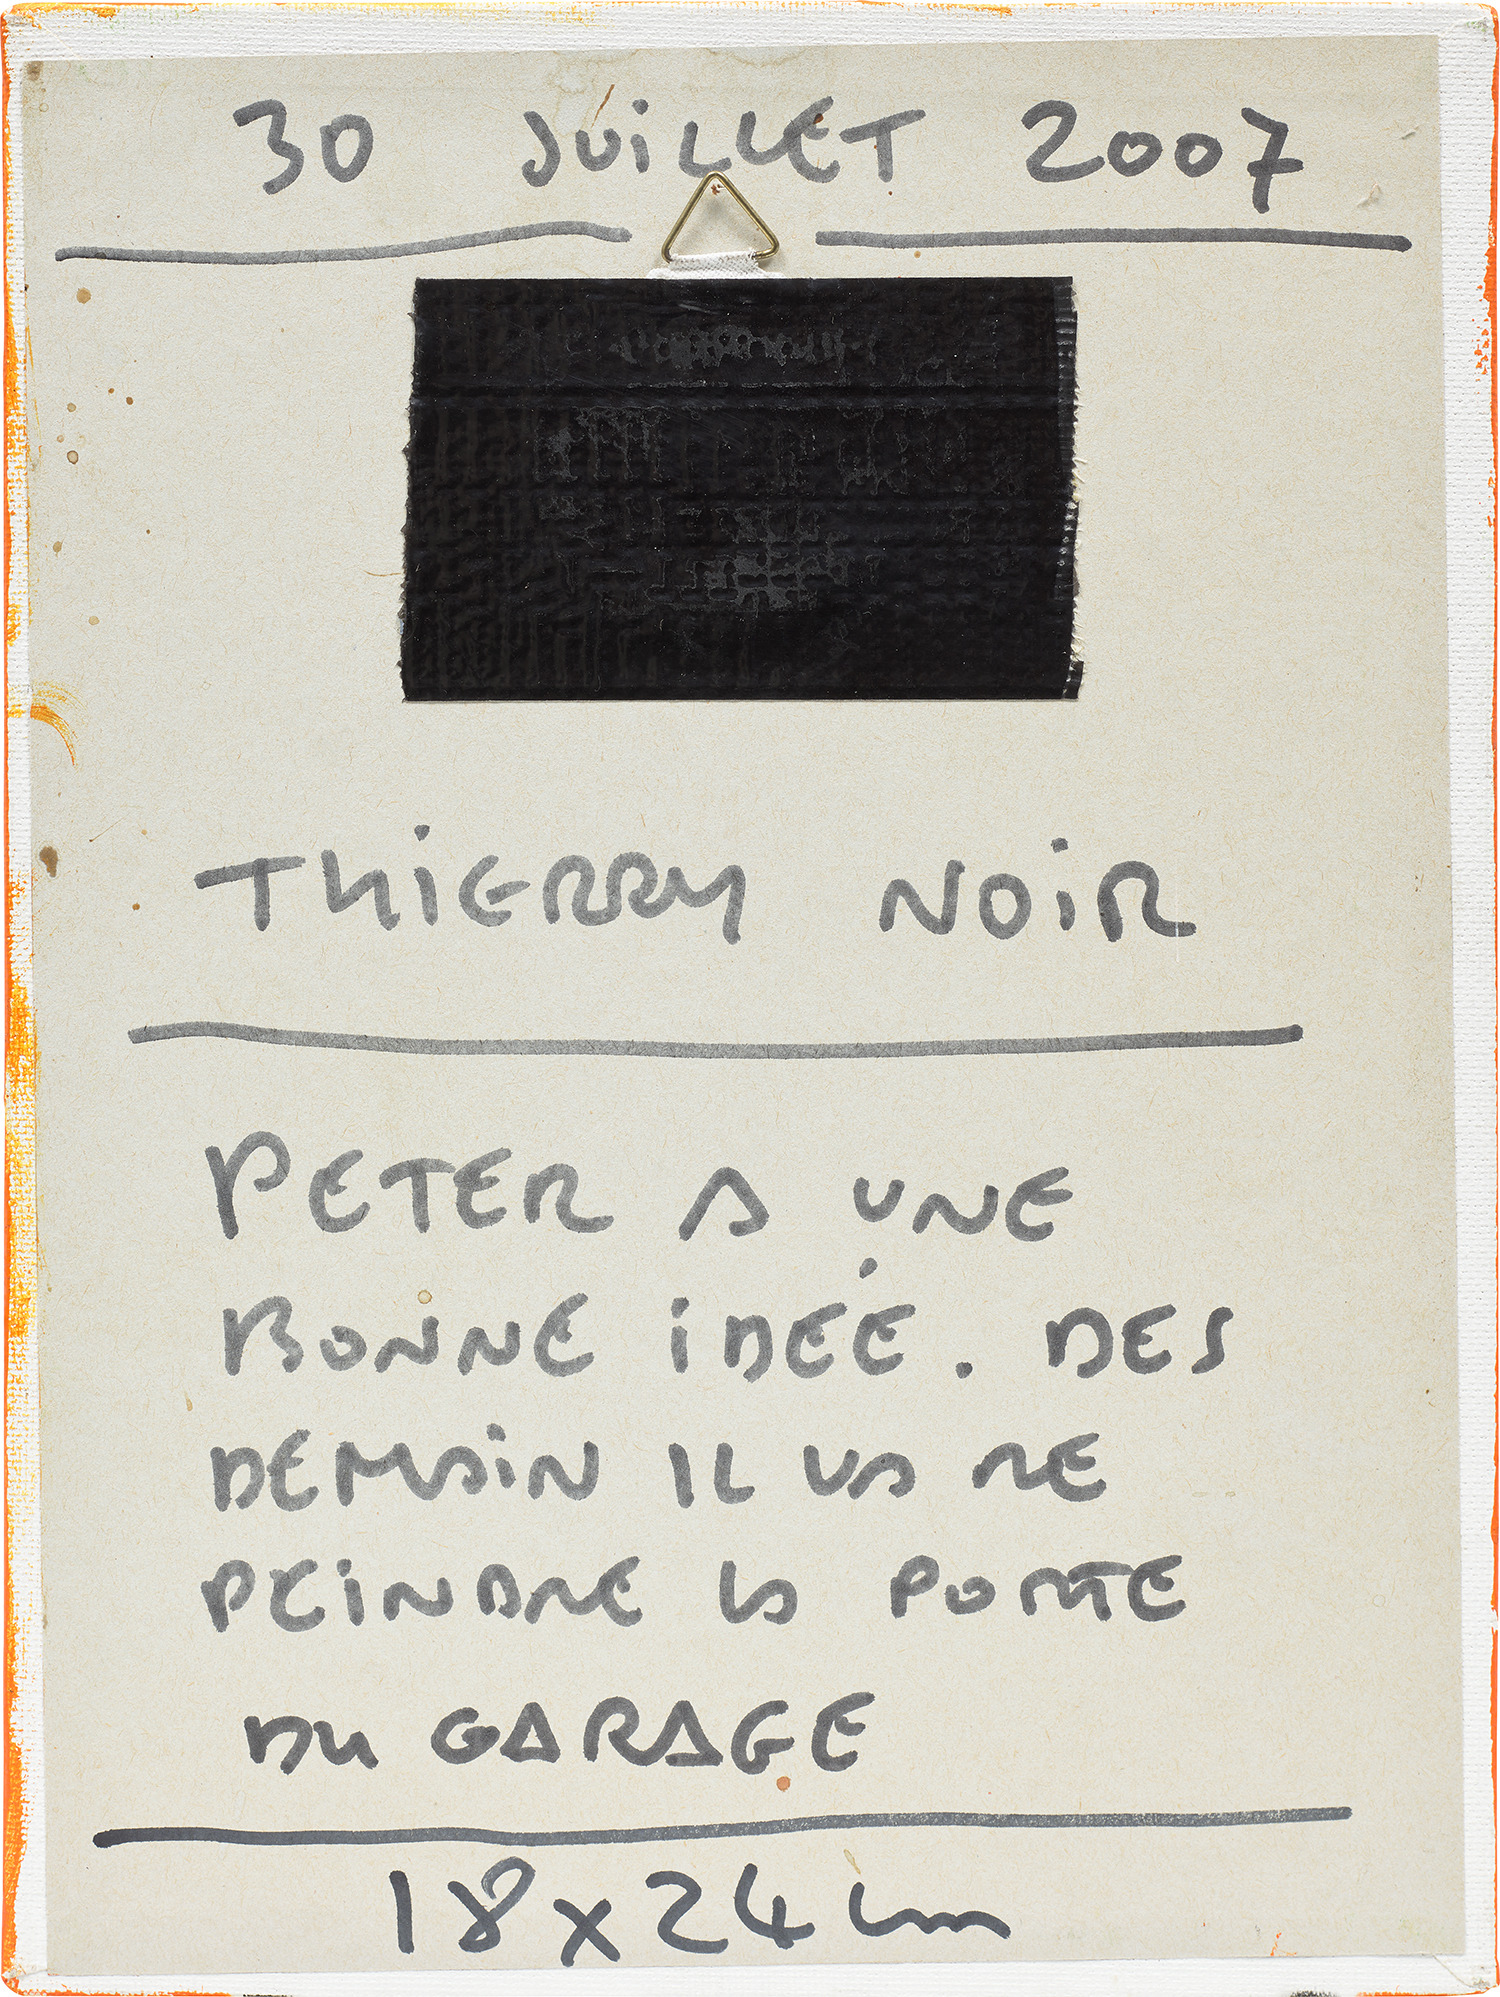 30 JUILLET 2007
THIERRY NOIR
PETER A UNE
BONNE IDEÉ. DES
DEMAIN IL VA RE
PEINDRE LA PORTE
DU GARAGE
18 x 24 cm